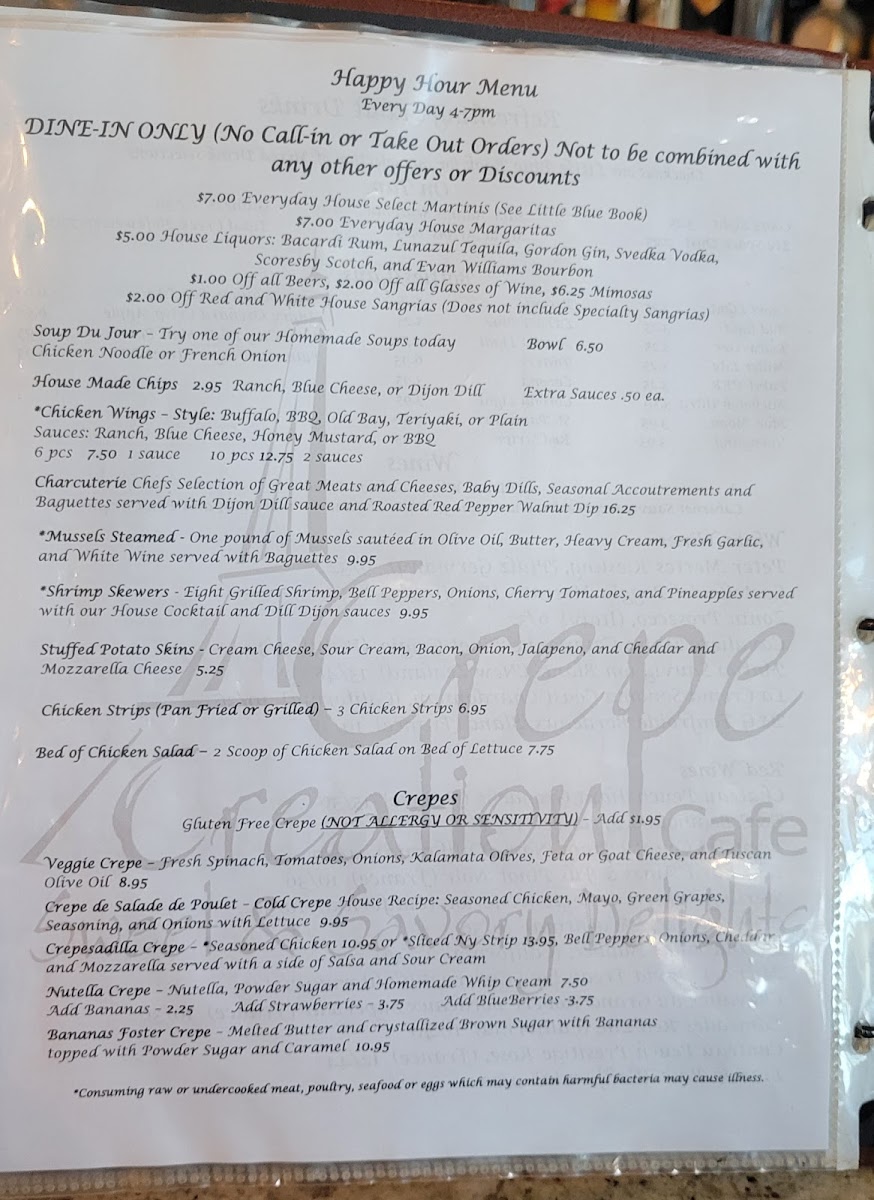 Happy Hour Menu
Every Day 4-7pm
DINE-IN ONLY (No Call-in or Take Out Orders) Not to be combined with
any other offers or Discounts
$7.00 Everyday House Select Martinis (See Little Blue Book)
$7.00 Everyday House Margaritas
$5.00 House Liquors: Bacardi Rum, Lunazul Tequila, Gordon Gin, Svedka Vodka,
Scoresby Scotch, and Evan Williams Bourbon
$1.00 Off all Beers, $2.00 Off all Glasses of Wine, $6.25 Mimosas
$2.00 Off Red and White House Sangrias (Does not include Specialty Sangrias)
Soup Du Jour - Try one of our Homemade Soups today Bowl 6.50
Chicken Noodle or French Onion
House Made Chips 2.95 Ranch, Blue Cheese, or Dijon Dill Extra Sauces .50 ea.
*Chicken Wings – Style: Buffalo, BBQ, Old Bay, Teriyaki, or Plain
Sauces: Ranch, Blue Cheese, Honey Mustard, or BBQ
6 pcs 7.50 1 sauce 10 pcs 12.75 2 sauces
Charcuterie Chefs Selection of Great Meats and Cheeses, Baby Dills, Seasonal Accoutrements and
Baguettes served with Dijon Dill sauce and Roasted Red Pepper Walnut Dip 16.25
*Mussels Steamed - One pound of Mussels sautéed in Olive Oil, Butter, Heavy Cream, Fresh Garlic,
and White Wine served with Baguettes 9.95
*Shrimp Skewers - Eight Grilled Shrimp, Bell Peppers, Onions, Cherry Tomatoes, and Pineapples served
with our House Cocktail and Dill Dijon sauces 9.95
Stuffed Potato Skins - Cream Cheese, Sour Cream, Bacon, Onion, Jalapeno, and Cheddar and
Mozzarella Cheese 5.25
Chicken Strips (Pan Fried or Grilled) – 3 Chicken Strips 6.95
Bed of Chicken Salad – 2 Scoop of Chicken Salad on Bed of Lettuce 7.75
Crepe
Creation Cafe
Sweet & Savory Delights
Crepes
Gluten Free Crepe (NOT ALLERGY OR SENSITIVITY) – Add $1.95
Veggie Crepe – Fresh Spinach, Tomatoes, Onions, Kalamata Olives, Feta or Goat Cheese, and Tuscan
Olive Oil 8.95
Crepe de Salade de Poulet - Cold Crepe House Recipe: Seasoned Chicken, Mayo, Green Grapes,
Seasoning, and Onions with Lettuce 9.95
Crepesadilla Crepe – *Seasoned Chicken 10.95 or *Sliced Ny Strip 13.95, Bell Peppers, Onions, Cheddar
and Mozzarella served with a side of Salsa and Sour Cream
Nutella Crepe – Nutella, Powder Sugar and Homemade Whip Cream 7.50
Add Bananas – 2.25 Add Strawberries – 3.75 Add BlueBerries -3.75
Bananas Foster Crepe – Melted Butter and crystallized Brown Sugar with Bananas
topped with Powder Sugar and Caramel 10.95
*Consuming raw or undercooked meat, poultry, seafood or eggs which may contain harmful bacteria may cause illness.